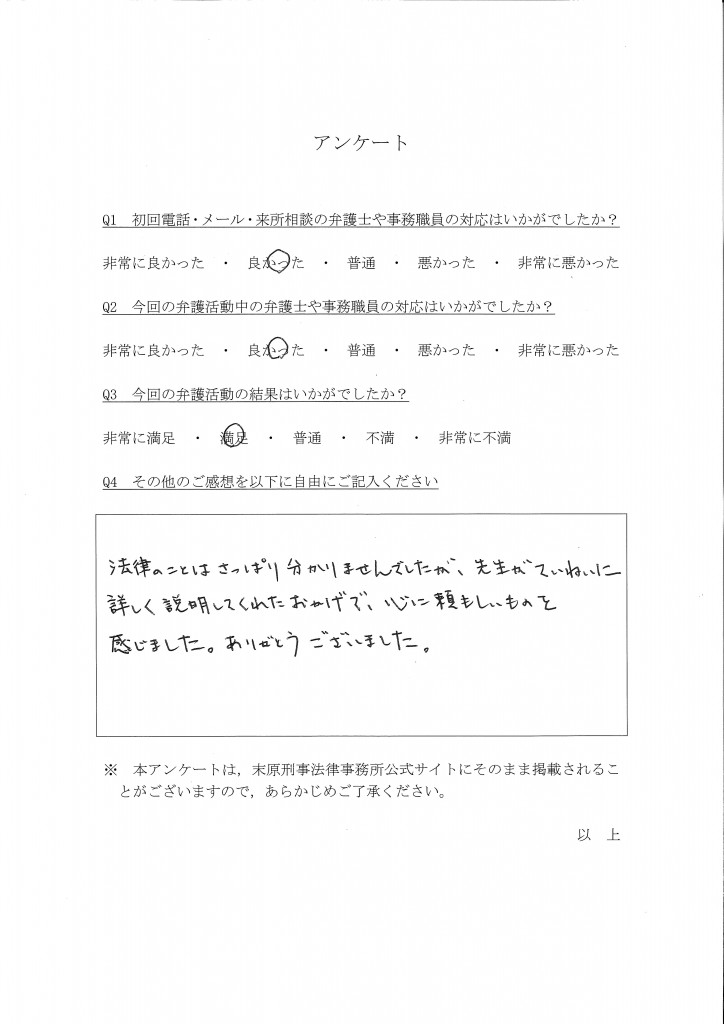 アンケート
Q1 初回電話・メール・来所相談の弁護士や事務職員の対応はいかがでしたか？
非常に良かった ・ 良かった ・ 普通 ・ 悪かった ・ 非常に悪かった
Q2 今回の弁護活動中の弁護士や事務職員の対応はいかがでしたか？
非常に良かった ・ 良かった ・ 普通 ・ 悪かった ・ 非常に悪かった
Q3 今回の弁護活動の結果はいかがでしたか？
非常に満足 ・ 満足 ・ 普通 ・ 不満 ・ 非常に不満
Q4 その他のご感想を以下に自由にご記入ください
法律のことはさっぱり分かりませんでしたが、先生がていねいに
詳しく説明してくれたおかげで、心に頼もしいものを
感じました。ありがとうございました。
※ 本アンケートは，末原刑事法律事務所公式サイトにそのまま掲載されるこ
とがございますので，あらかじめご了承ください。
以 上